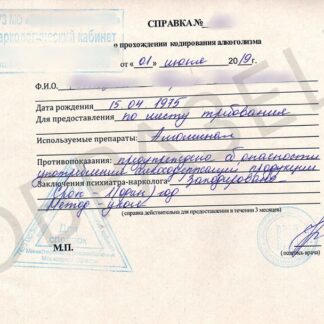 УЗ МО
наркологический кабинет
СПРАВКА №
о прохождении кодирования алкоголизма
от «01» июля 2019г.
Ф.И.О.
Дата рождения 15 04 1975
Для предоставления: по месту требования
Используемые препараты:
Противопоказания: предупреждена об опасности
употребления продукции
Заключения психиатра-нарколога: Закодирована
Срок - 1 (один) год
Метод - укол
(справка действительна для предоставления в течении 3 месяцев)
М.П.
(подпись врача)